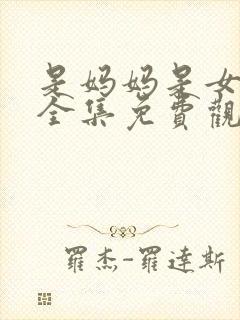 是妈妈是女
全集免費觀
羅杰-羅達斯